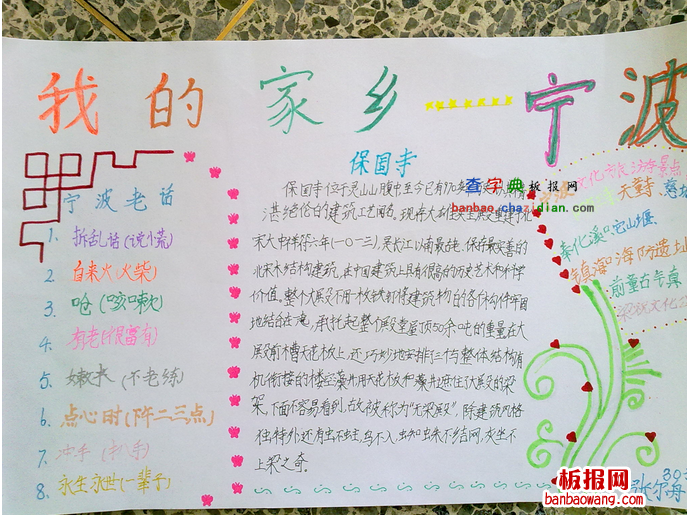 我的家乡 宁波
宁波老话
1. 拆乱话(说谎)
2. 自来火(火柴)
3. 呛(咳嗽)
4. 有老(很富有)
5. 嫩 (不老练)
6. 点心时(下午二三点)
7. 冲手(扒手)
8. 永生永世(一辈子)
保国寺
保国寺位于灵山山腹中至今已有
湛绝伦的建筑工艺闻名。现存大雄宝殿重建于北
宋大中祥符六年(一〇一三),是长江以南最古老,保存最完善的
北宋木结构建筑。在中国建筑上具有很高的历史艺术和科学
价值。整个大殿不用一枚铁钉将建筑物的各个构件牢固
地结合在一起,承托起整个殿堂屋顶50余吨的重量在大
殿前槽天花板上,还巧妙地安排三个与整体结构有
机衔接的镂空藻井用天花板和藻井遮住了大殿的梁
架,下面不容易看到,故被称为“无梁殿”,除建筑风格
独特外还有虫不蛀,鸟不入,蜘蛛不结网,灰尘不
上梁之奇。
查字典板报网
banbao.chazidian.com
文化旅游景点
天童
奉化溪口 它山堰
镇海口海防遗址
前童古镇
梁祝文化
板报网
banbaowang.com